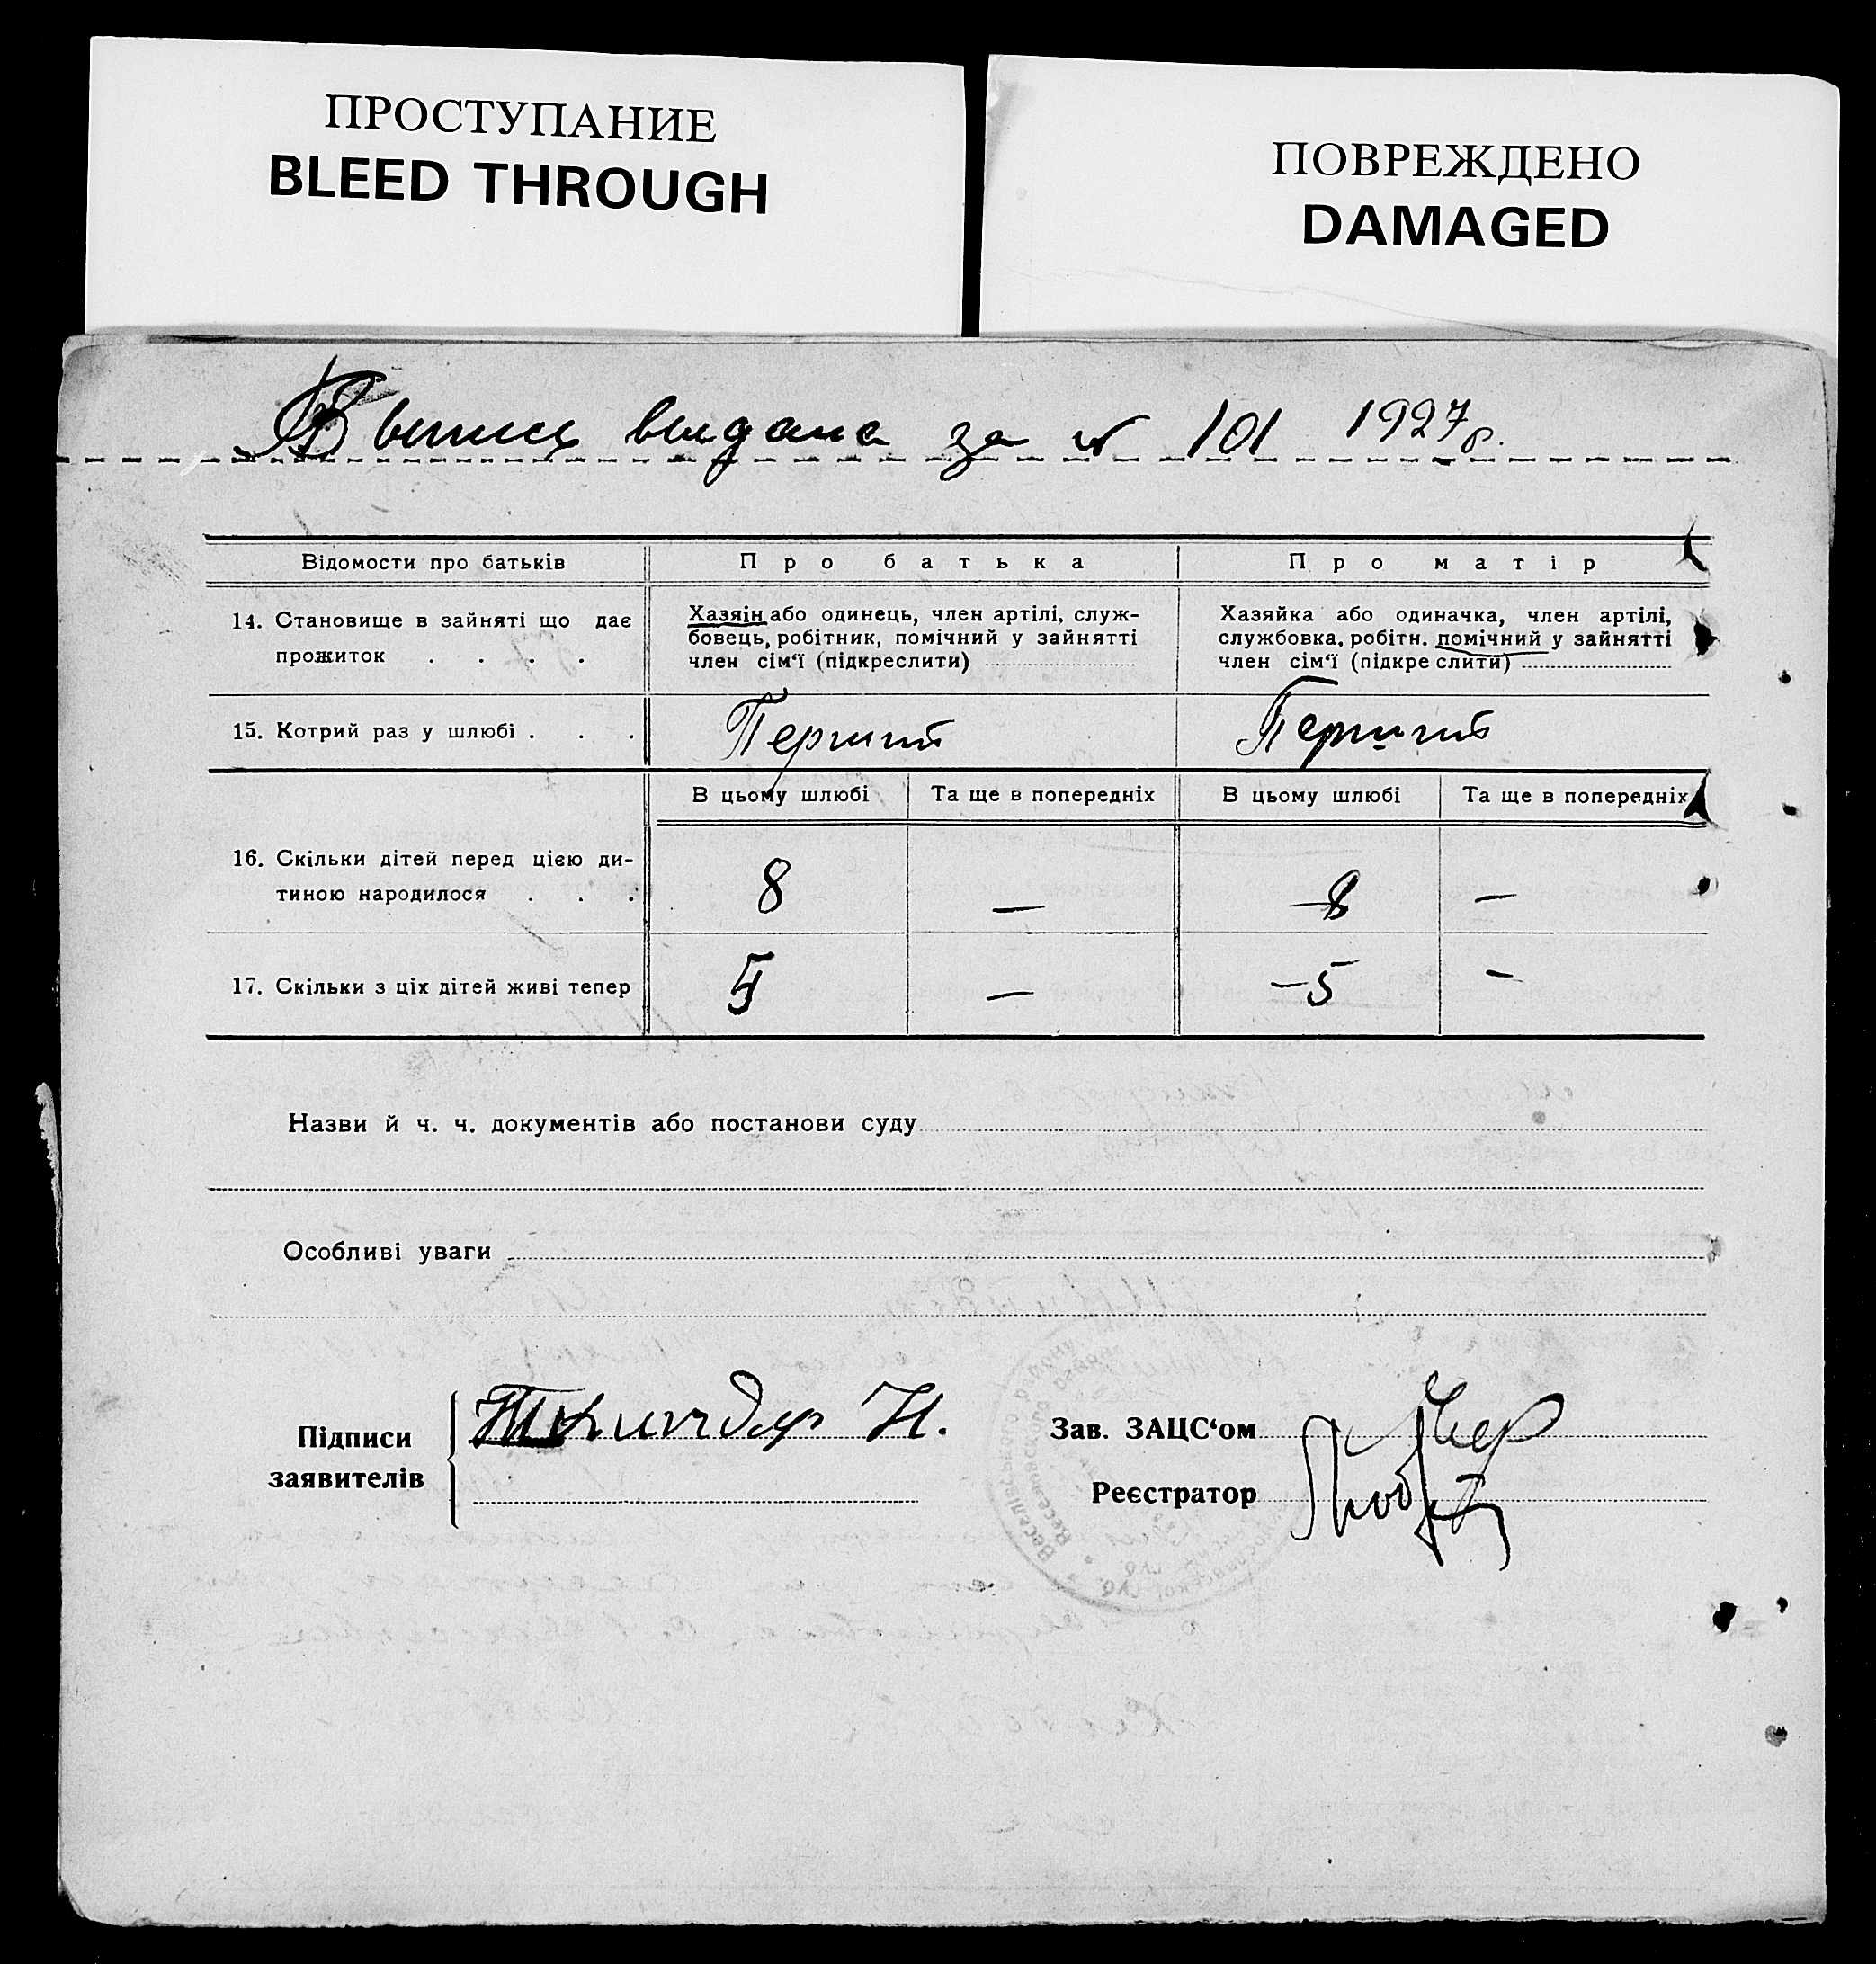 ПРОСТУПАНИЕ
BLEED THROUGH
ПОВРЕЖДЕНО
DAMAGED
Выпись выдана за № 101 1927 р.
Відомости про батьків
Про батька
Про матір
14. Становище в зайняті що дає
прожиток . . . .
Хазяін або одинець, член артілі, служ-
бовець, робітник, помічний у зайнятті
член сім‘ї (підкреслити)
Хазяйка або одиначка, член артілі,
службовка, робітн. помічний у зайнятті
член сім‘ї (підкреслити)
15. Котрий раз у шлюбі . . .
Перший
Перший
В цьому шлюбі
Та ще в попередніх
В цьому шлюбі
Та ще в попередніх
16. Скільки дітей перед цією ди-
тиною народилося . . .
8 — 8 —
17. Скільки з ціх дітей живі тепер
5 — 5 —
Назви й ч. ч. документів або постанови суду
Особливі уваги
Підписи
заявителів
Н.
Зав. ЗАЦС‘ом
Реєстратор